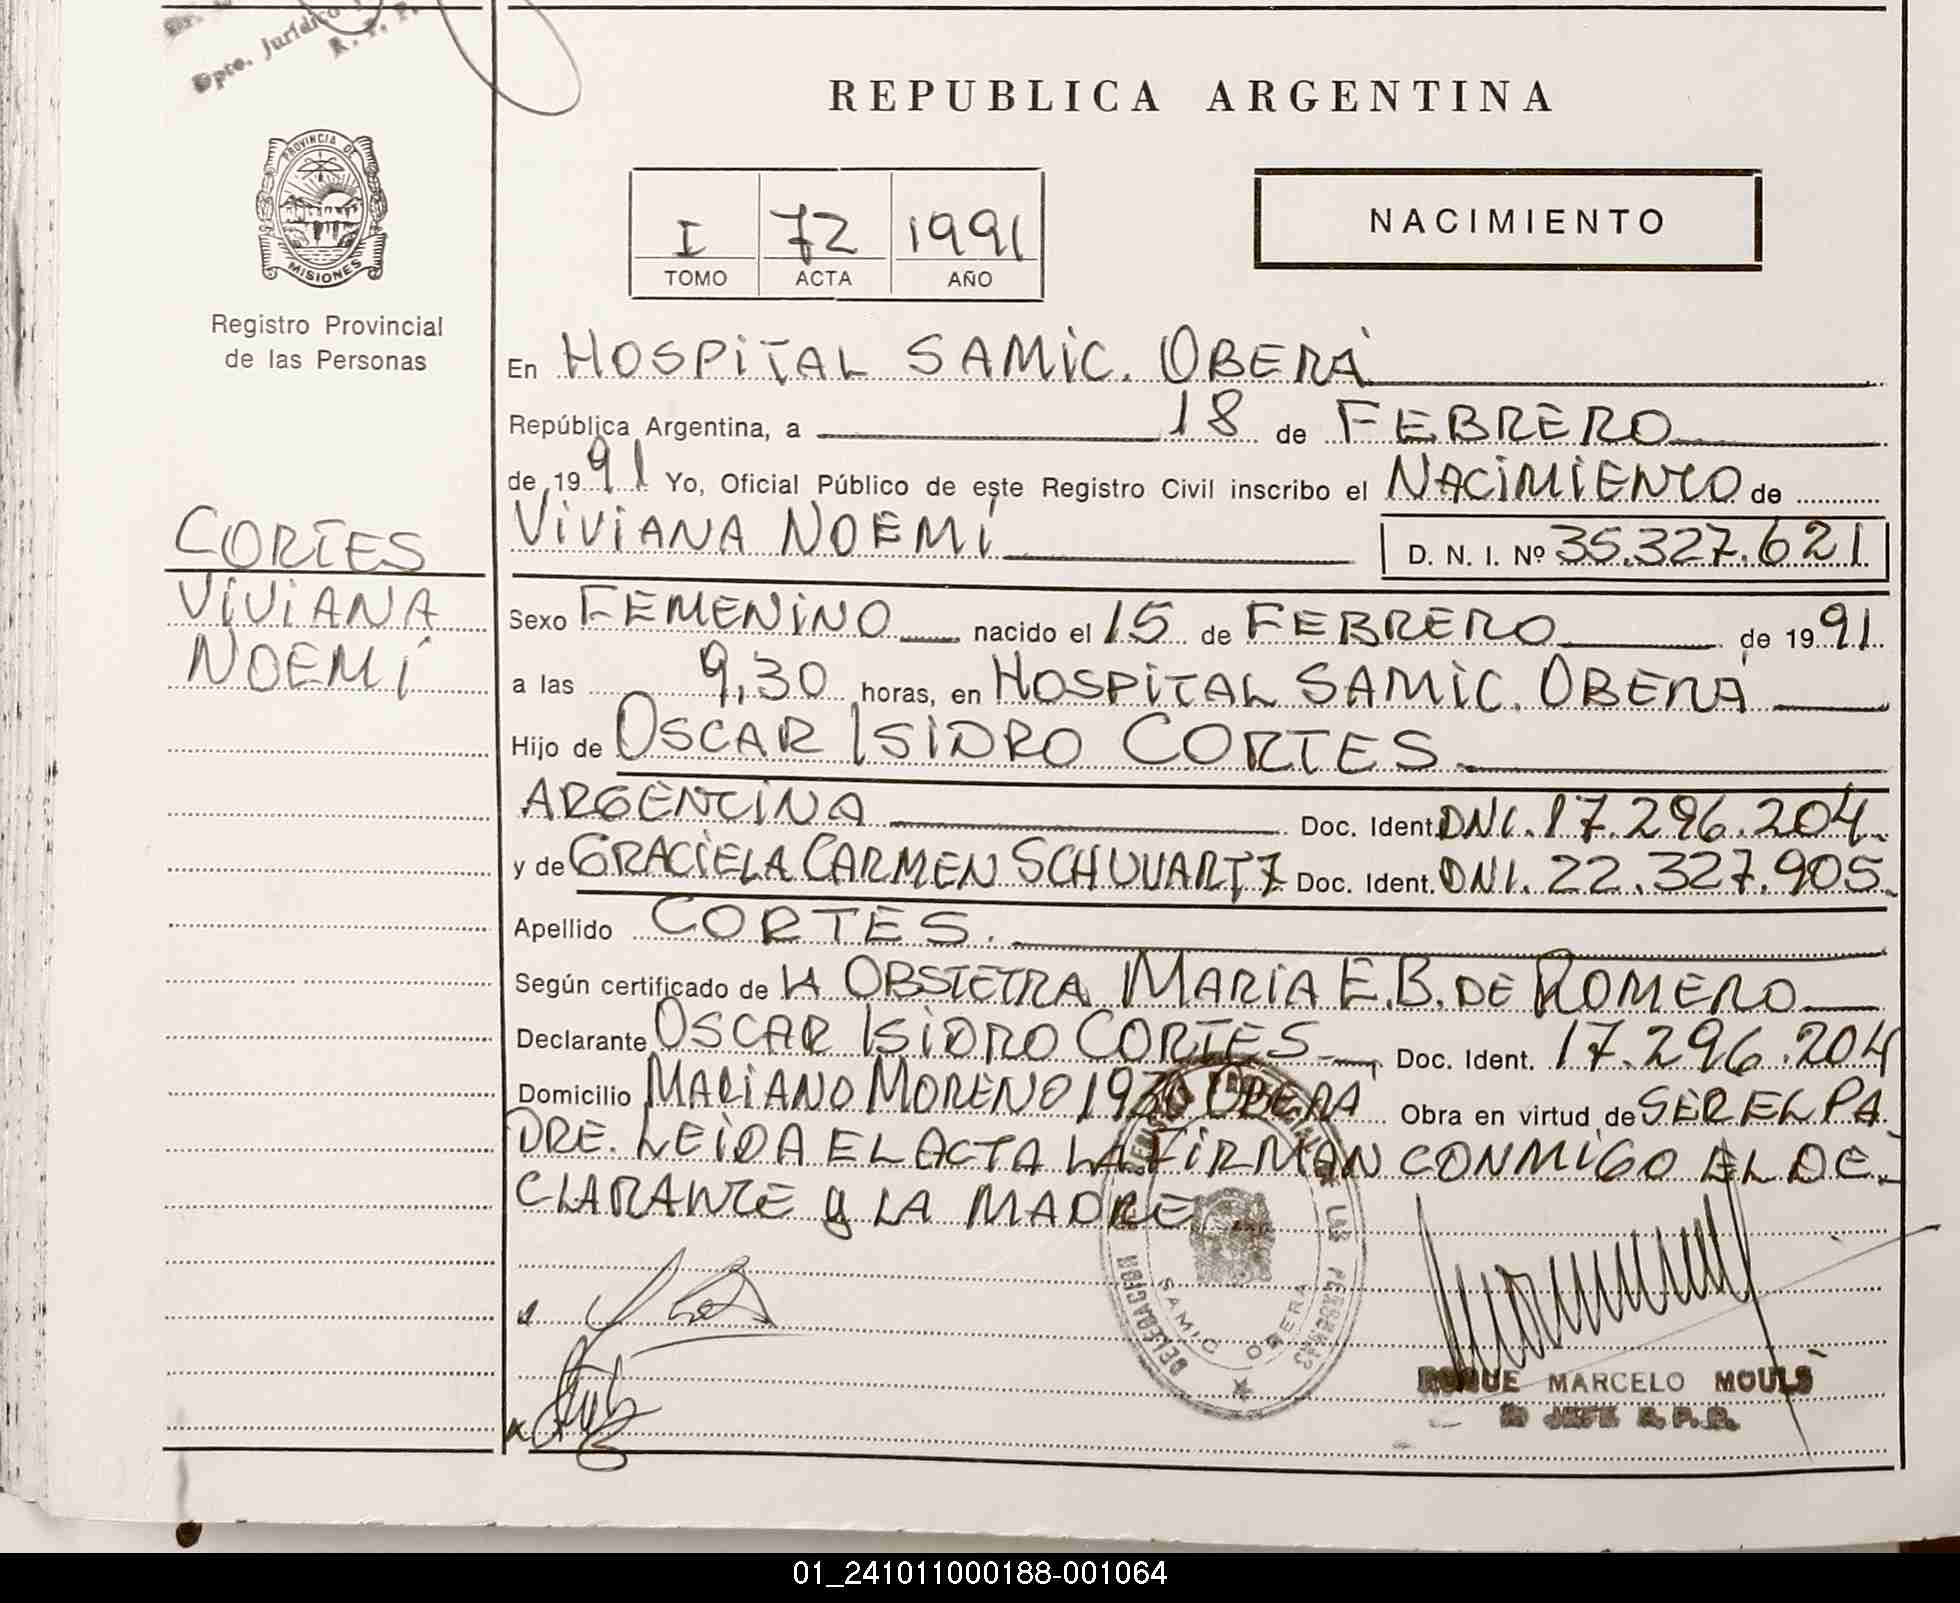 Dpto. Jurídico
R. P. P.
REPUBLICA ARGENTINA
PROVINCIA DE
MISIONES
Registro Provincial
de las Personas
I 72 1991
TOMO ACTA AÑO
NACIMIENTO
En HOSPITAL SAMIC. OBERÁ
República Argentina, a 18 de FEBRERO
de 1991 Yo, Oficial Público de este Registro Civil inscribo el NACIMIENTO de
CORTES
VIVIANA
NOEMÍ
VIVIANA NOEMÍ D. N. I. Nº 35.327.621
Sexo FEMENINO nacido el 15 de FEBRERO de 1991
a las 9,30 horas, en HOSPITAL SAMIC. OBERÁ
Hijo de OSCAR ISIDRO CORTES
ARGENTINA Doc. Ident. DNI. 17.296.204
y de GRACIELA CARMEN SCHUVARTZ Doc. Ident. DNI. 22.327.905
Apellido CORTES.
Según certificado de LA OBSTETRA MARIA E.B. DE ROMERO
Declarante OSCAR ISIDRO CORTES Doc. Ident. 17.296.204
Domicilio MARIANO MORENO 1930 OBERA Obra en virtud de SER EL PA
DRE. LEIDA EL ACTA LA FIRMAN CONMIGO EL DE
CLARANTE y LA MADRE
DELEGACION
LAS PERSONAS
SAMIC OBERA
ROQUE MARCELO MOULS
JEFE R. P. P.
01_241011000188-001064